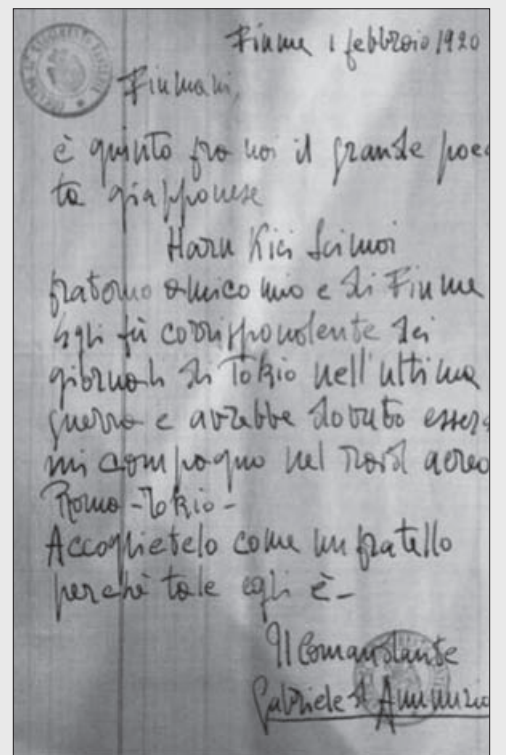 Fiume 1 febbraio 1920
Fiumani,
è quinto fra noi il grande poe
ta giapponese
Haru Kici Scimoi
fraterno amico mio e di Fiume
Egli fù corrispondente dei
giornali di Tokio nell'ultima
guerra e avrebbe dovuto esser
mi compagno nel raid aereo
Roma-Tokio-
Accoglietelo come un fratello
perchè tale egli è-
Il Comandante
Gabriele d'Annunzio